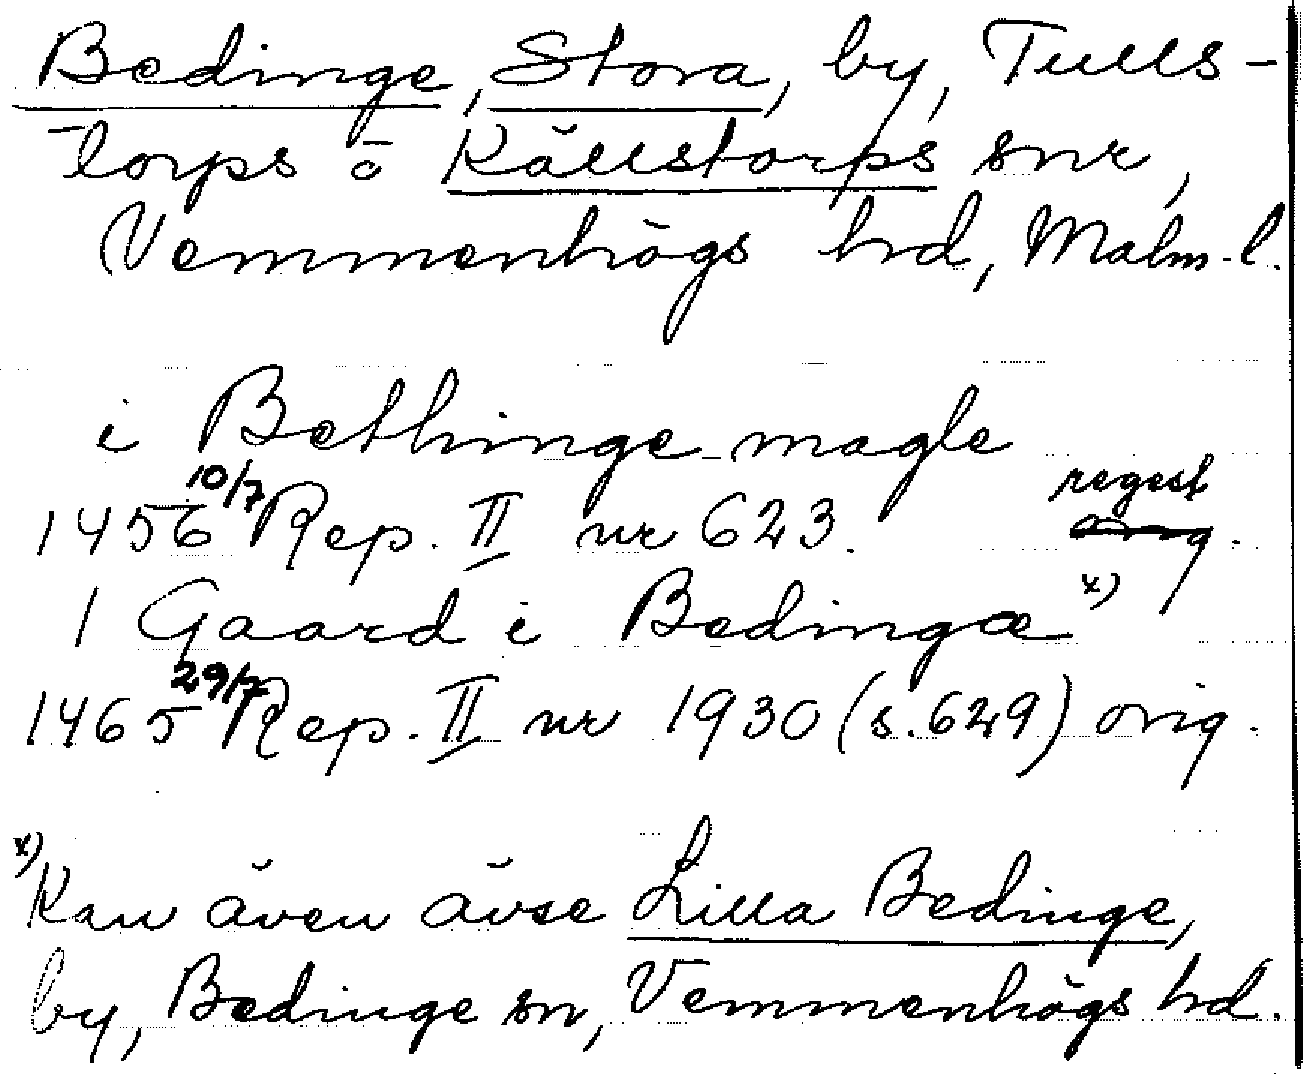 Bedinge, Stora, by, Tulls-
torps o Källstorps snr,
Vemmenhögs hrd, Malm.l.
i Bethinge magle
1456 10/7 Rep. II nr 623. regest orig.
1 Gaard i Bedingæ x)
1465 29/7 Rep. II nr 1930 (s.629) orig.
x) Kan även avse Lilla Bedinge,
by, Bedinge sn, Vemmenhögs hrd.